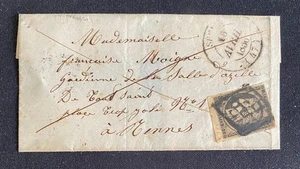 Mademoiselle
francoise Moigno
gardienne de la Salle d'azille
De Tout Saint
place trop pole N° 1
à Rennes